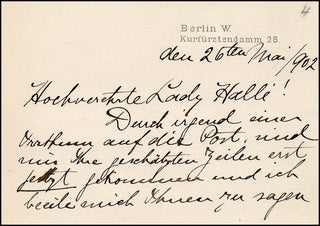 4
Berlin W.
Kurfürstendamm 28.
den 26ten Mai/902
Hochverehrte Lady Hallé!
Durch irgend einen
Irrthum auf der Post, sind
mir Ihre geschätzten Zeilen erst
jetzt gekommen und ich
beeile mich Ihnen zu sagen